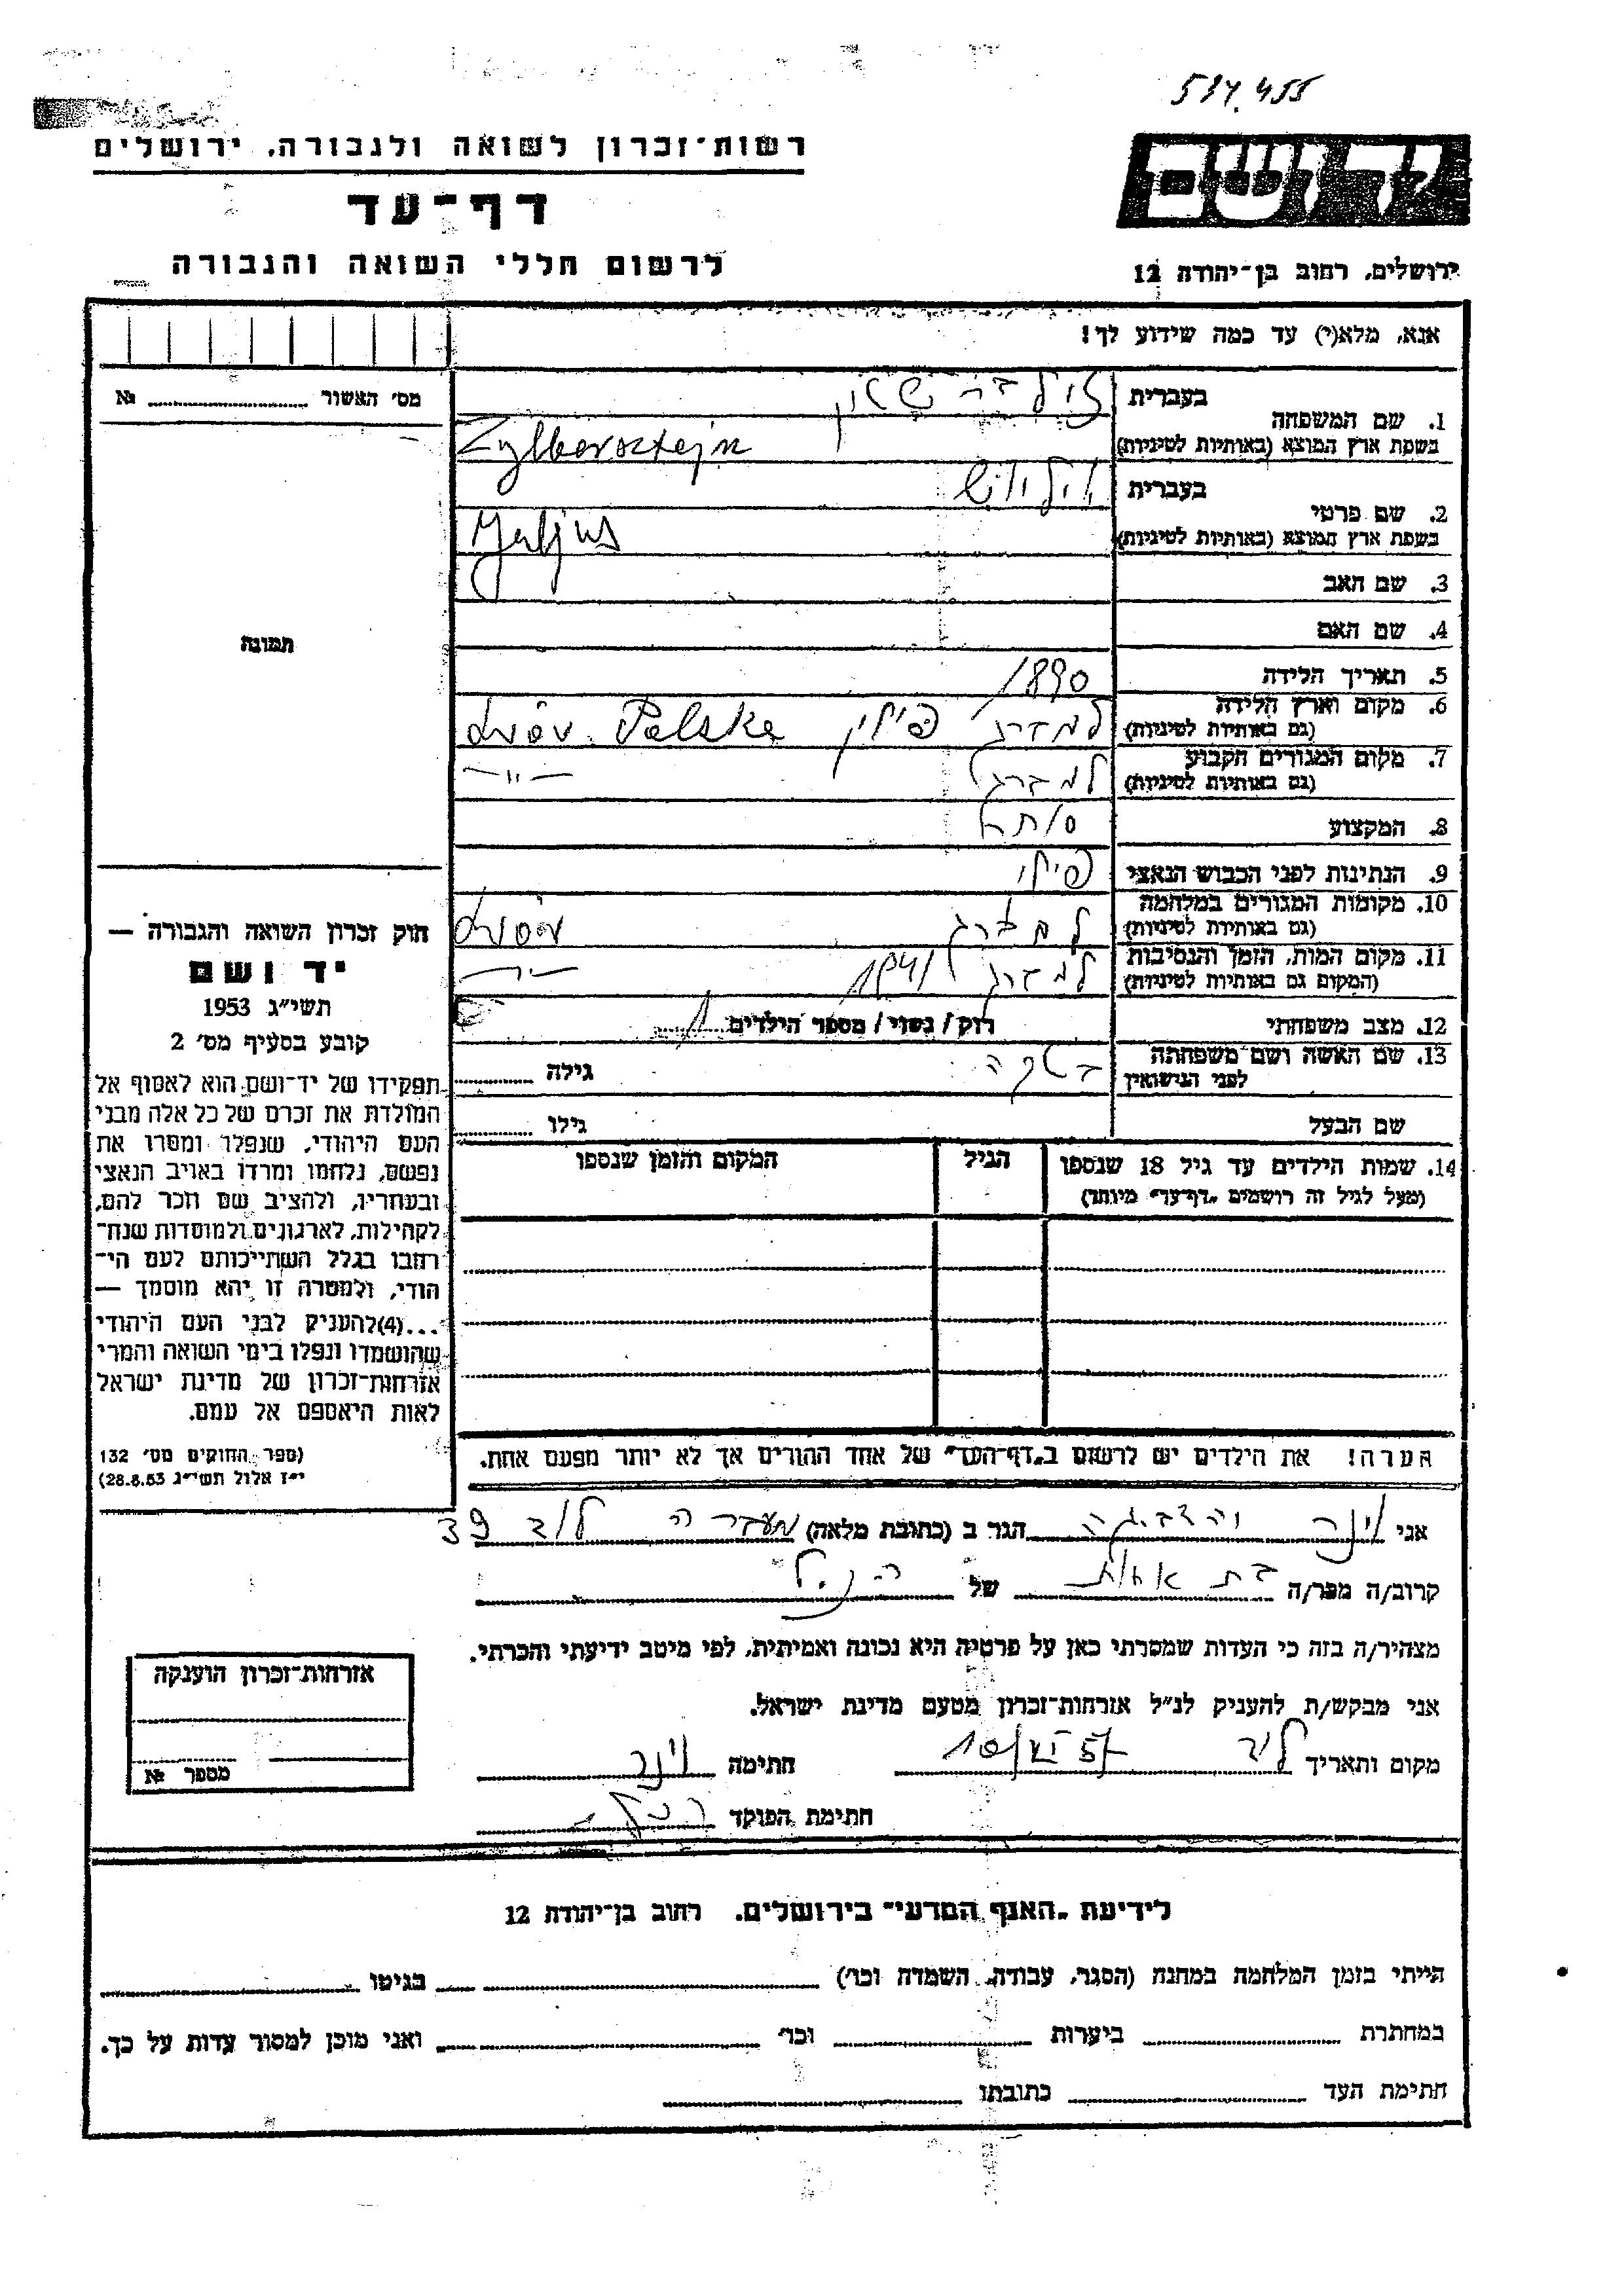 534.455
יד ושם
רשות־זכרון לשואה ולגבורה, ירושלים
דף־עד
לרשום חללי השואה והגבורה
ירושלים, רחוב בן־יהודה 12
אנא, מלא(י) עד כמה שידוע לך!
מס׳ האשור № 
תמונה
1. שם המשפחה
בעברית זילברשטין
בשפת ארץ המוצא (באותיות לטיניות) Zylbersztejn
2. שם פרטי
בעברית יוליוש
בשפת ארץ המוצא (באותיות לטיניות) Juljus
3. שם האב
4. שם האם
5. תאריך הלידה 1890
6. מקום וארץ הלידה
(גם באותיות לטיניות) למברג פולין Lwów. Polska
7. מקום המגורים הקבוע
(גם באותיות לטיניות) למברג —״—
8. המקצוע סוחר
9. הנתינות לפני הכבוש הנאצי פולני
10. מקומות המגורים במלחמה
(גם באותיות לטיניות) למברג Lwów
11. מקום המות, הזמן והנסיבות
(המקום גם באותיות לטיניות) למברג 1941 —״—
12. מצב משפחתי רוק / נשוי / מספר הילדים 1
13. שם האשה ושם משפחתה
לפני הנישואין גילה
שם הבעל גילו
14. שמות הילדים עד גיל 18 שנספו הגיל המקום והזמן שנספו
(מעל לגיל זה רושמים „דף־עד״ מיוחד)
חוק זכרון השואה והגבורה —
יד ושם
תשי״ג 1953
קובע בסעיף מס׳ 2
תפקידו של יד־ושם הוא לאסוף אל
המולדת את זכרם של כל אלה מבני
העם היהודי, שנפלו ומסרו את
נפשם, נלחמו ומרדו באויב הנאצי
ובעוזריו, ולהציב שם וזכר להם,
לקהילות, לארגונים ולמוסדות שנח־
רבו בגלל השתייכותם לעם הי־
הודי, ולמטרה זו יהא מוסמך —
...(4)להעניק לבני העם היהודי
שהושמדו ונפלו בימי השואה והמרי
אזרחות־זכרון של מדינת ישראל
לאות היאספם אל עמם.
(ספר החוקים מס׳ 132
י״ז אלול תשי״ג 28.8.53)
הערה! את הילדים יש לרשום ב„דף־העד״ של אחד ההורים אך לא יותר מפעם אחת.
אני וינר הגר ב (כתובת מלאה) מעברה לוד 39
קרוב/ה מכר/ה בת אחות של הנ.ל
מצהיר/ה בזה כי העדות שמסרתי כאן על פרטיה היא נכונה ואמיתית, לפי מיטב ידיעתי והכרתי.
אני מבקש/ת להעניק לנ״ל אזרחות־זכרון מטעם מדינת ישראל.
מקום ותאריך לוד 10/VI 57 חתימה וינר
חתימת הפוקד
אזרחות־זכרון הוענקה
מספר №
לידיעת „האגף המדעי״ בירושלים, רחוב בן־יהודה 12
הייתי בזמן המלחמה במחנה (הסגר, עבודה, השמדה וכו׳) בגיטו
במחתרת ביערות וכו׳ ואני מוכן למסור עדות על כך.
חתימת העד כתובתו